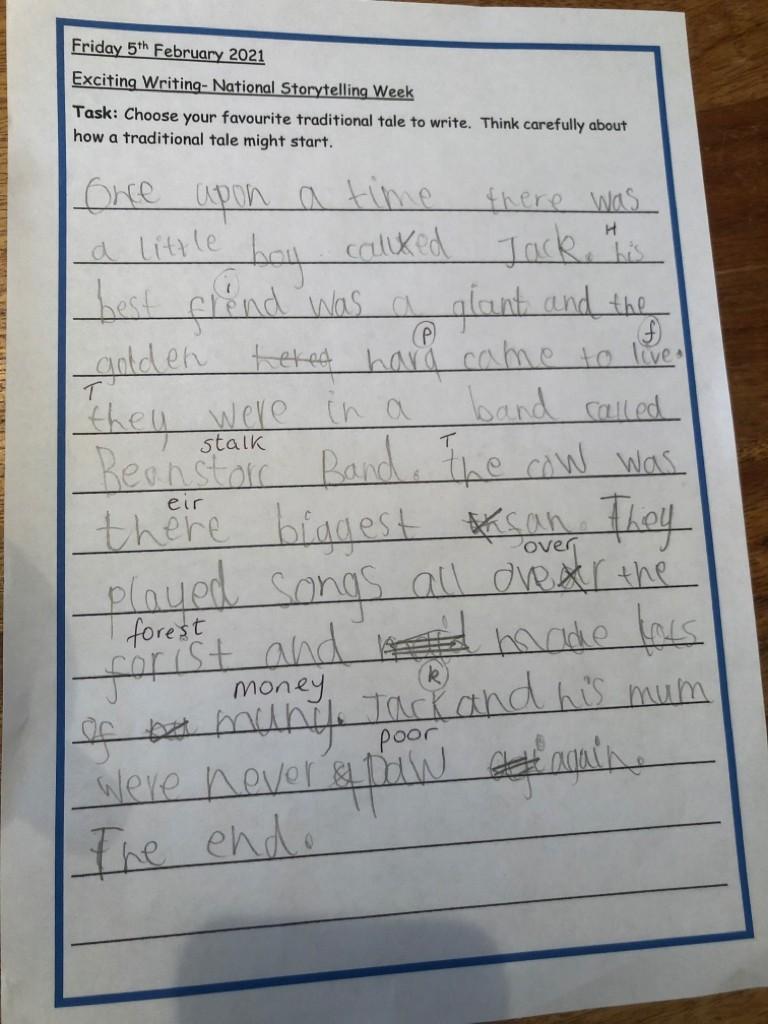 Friday 5th February 2021
Exciting Writing- National Storytelling Week
Task: Choose your favourite traditional tale to write. Think carefully about
how a traditional tale might start.
Once upon a time there was
H
a little boy called Jack. his
i
best frend was a giant and the
p f
golden harp came to live.
T
they were in a band called
stalk T
Beanstorc Band. the cow was
eir
there biggest fan. They
over
played songs all over the
forest
forist and made lots
money k
of muny. Jack and his mum
poor
were never paw again.
The end.